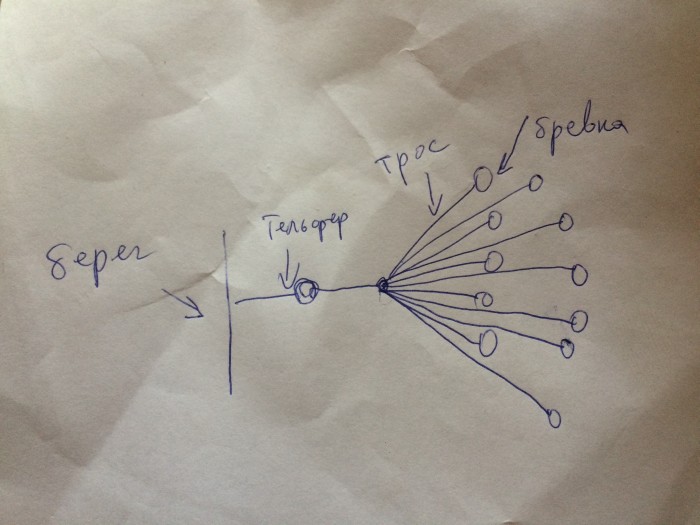 трос
бревна
Тельфер
берег